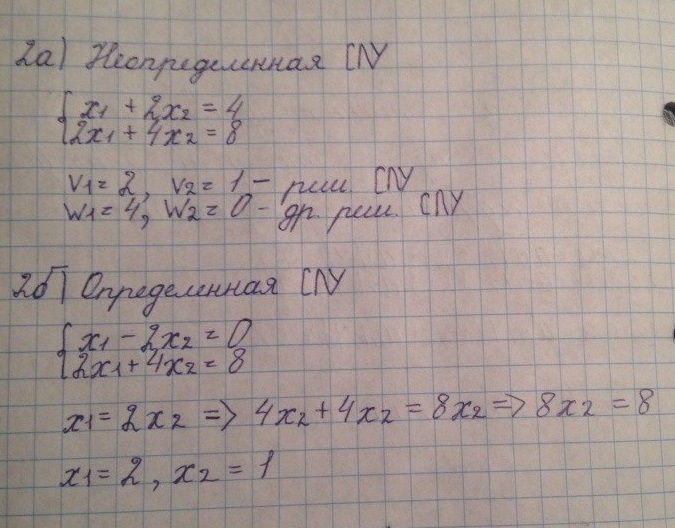 2а) Неопределенная СЛУ
x1 + 2x2 = 4
2x1 + 4x2 = 8
v1 = 2, v2 = 1 - реш. СЛУ
w1 = 4, w2 = 0 - др. реш. СЛУ
2б) Определенная СЛУ
x1 - 2x2 = 0
2x1 + 4x2 = 8
x1 = 2x2 => 4x2 + 4x2 = 8x2 => 8x2 = 8
x1 = 2, x2 = 1